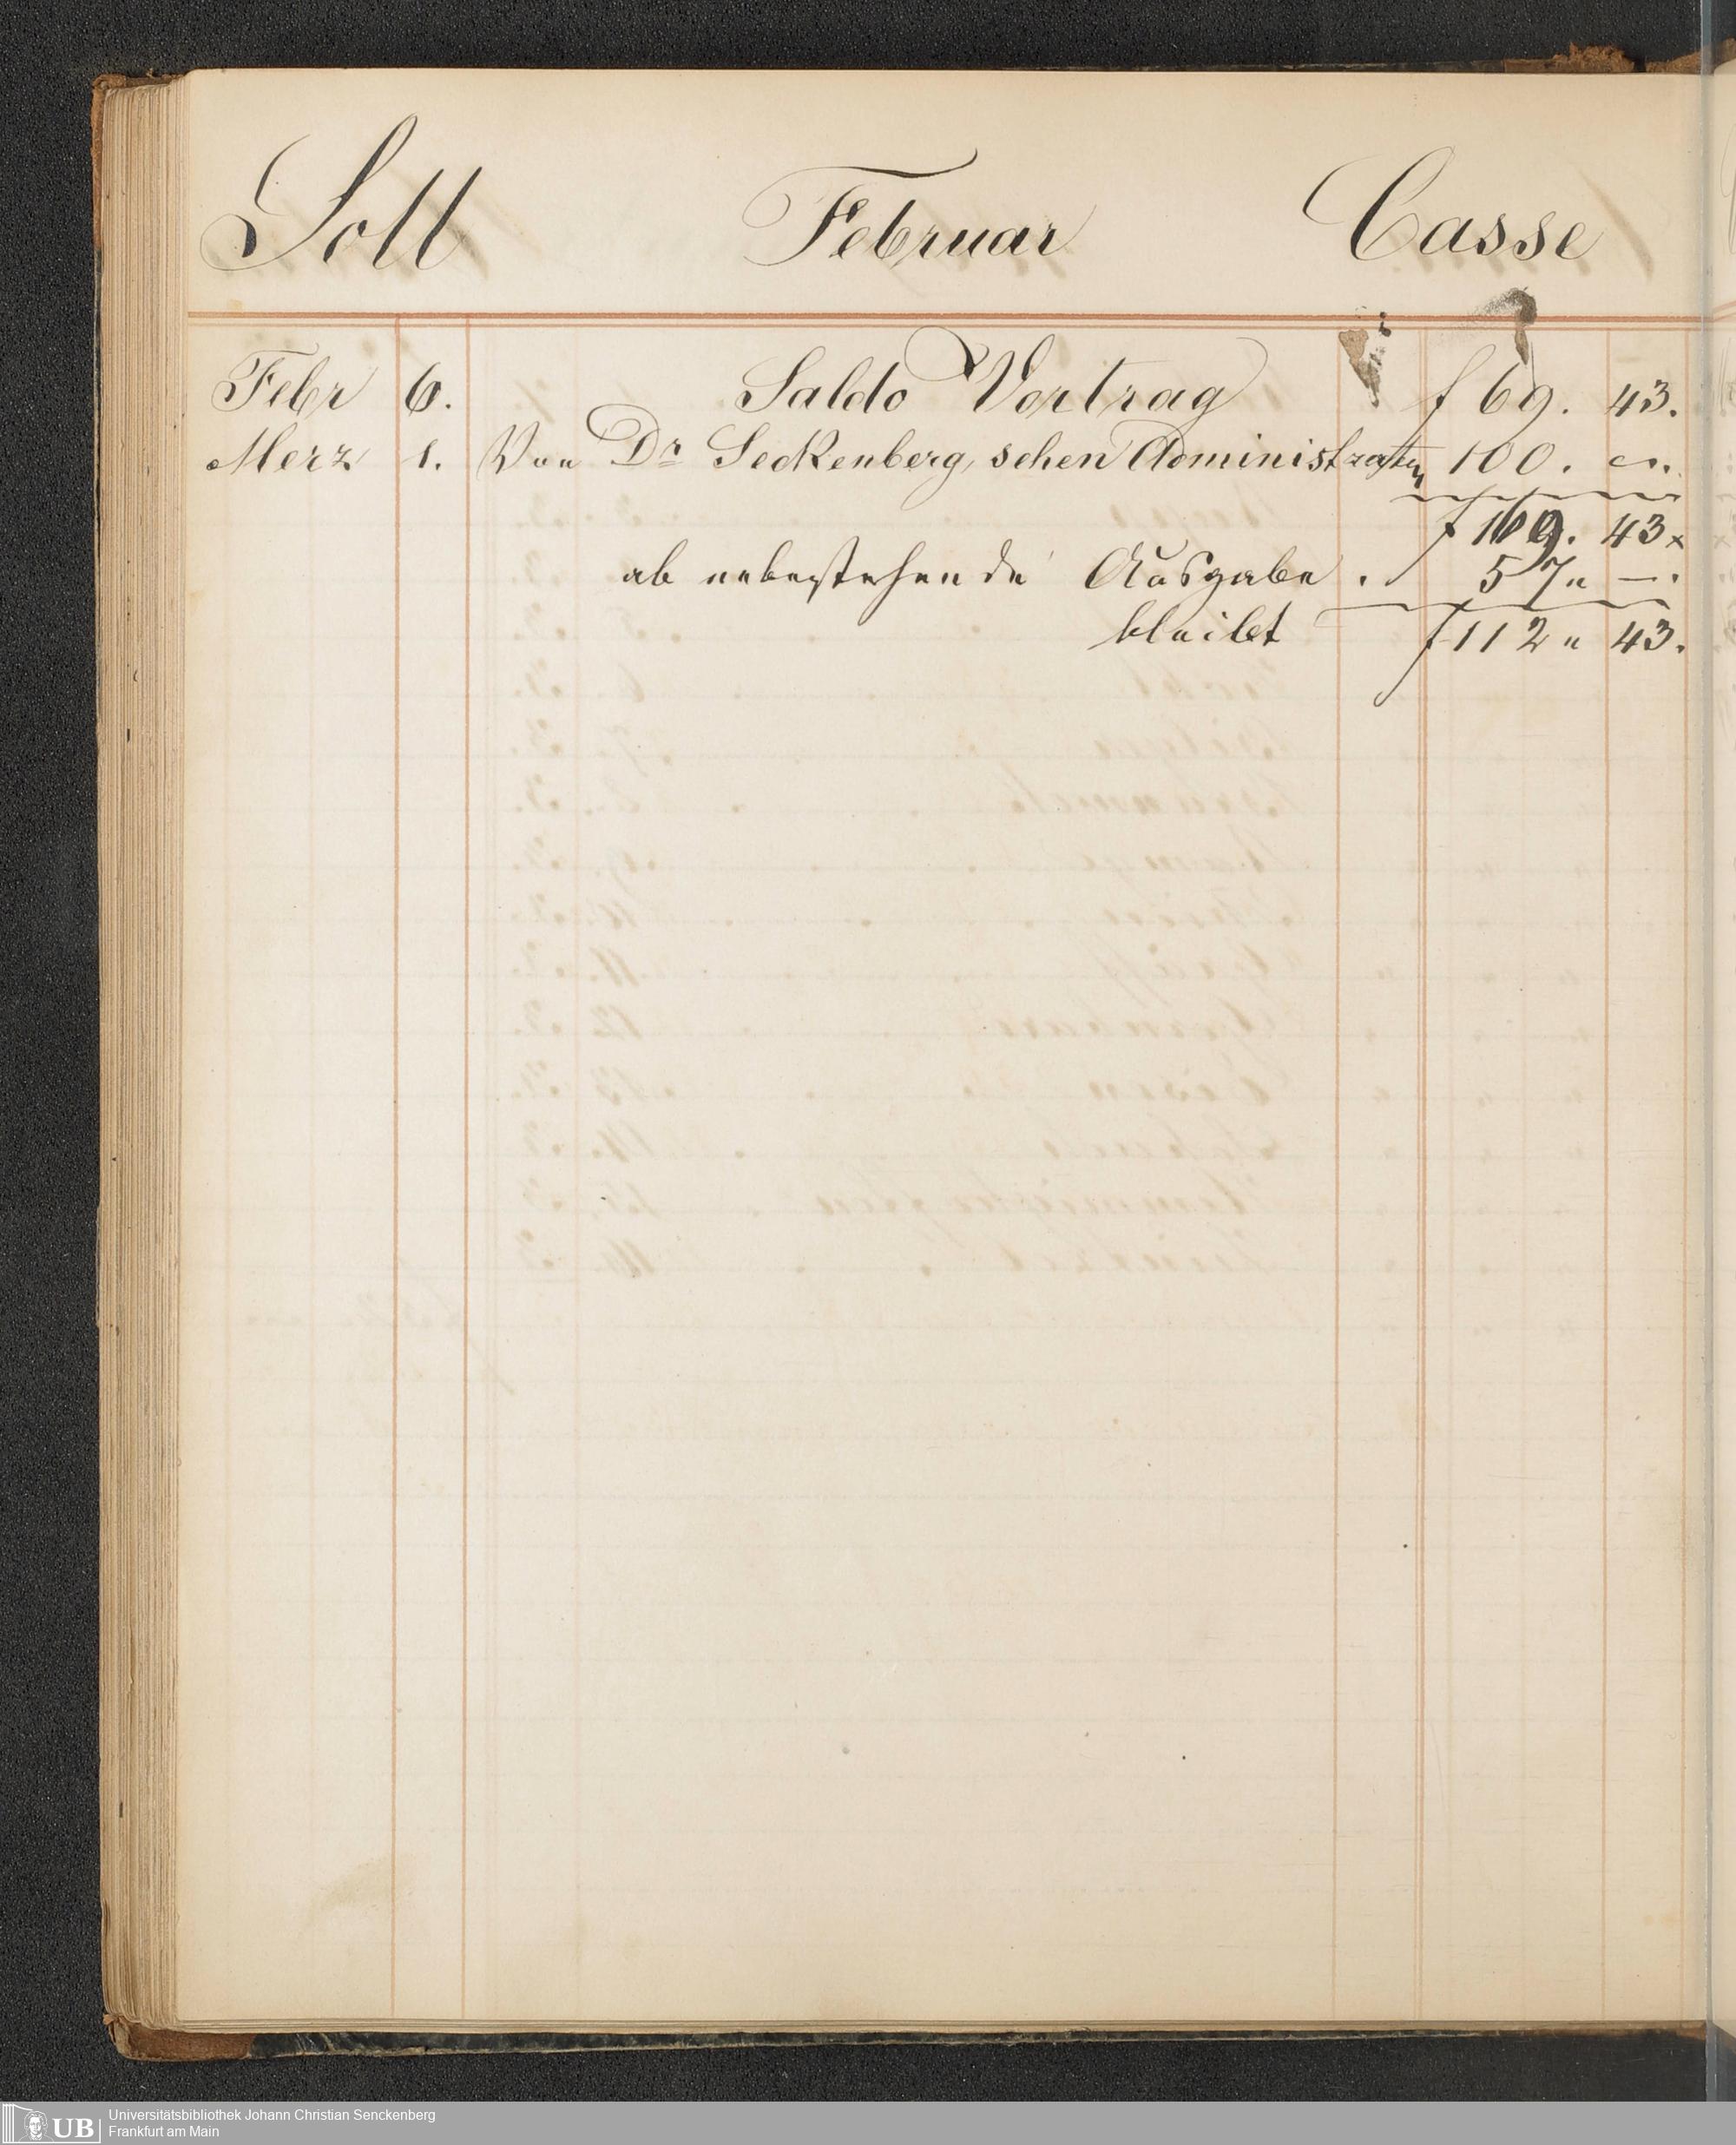 Soll Februar Casse
Febr 6. Saldo Vortrag f 69. 43.
Merz 1. Von Dr Seckenberg, schen Administraton 100. „.
f 169. 43 x
ab nebenstehende Ausgabe . 57 „ —.
bleibt f 112 „ 43.
UB Universitätsbibliothek Johann Christian Senckenberg
Frankfurt am Main